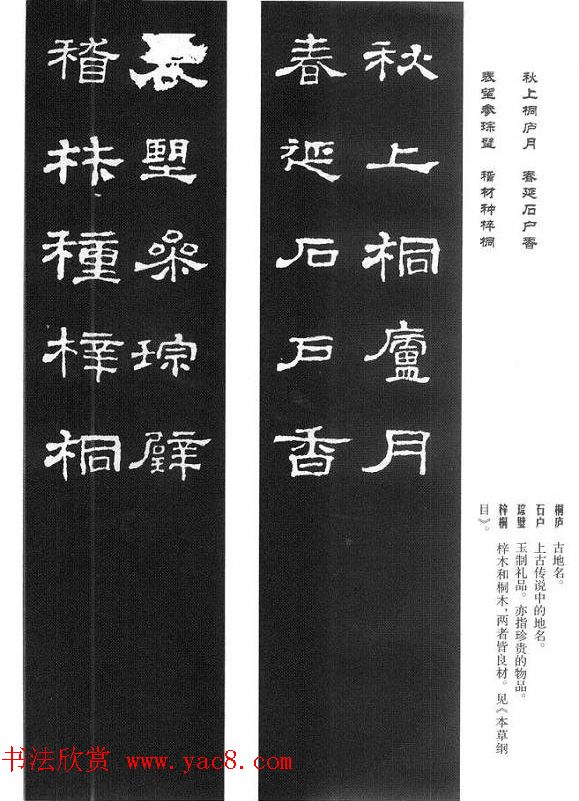 秋上桐庐月　春延石户香
表望参琮璧　稽材种梓桐
秋上桐廬月
春延石戶香
表朢叅琮璧
稽材種梓桐
桐庐　古地名。
石户　上古传说中的地名。
琮璧　玉制礼品。亦指珍贵的物品。
梓桐　梓木和桐木，两者皆良材。见《本草纲
目》。
书法欣赏 www.yac8.com